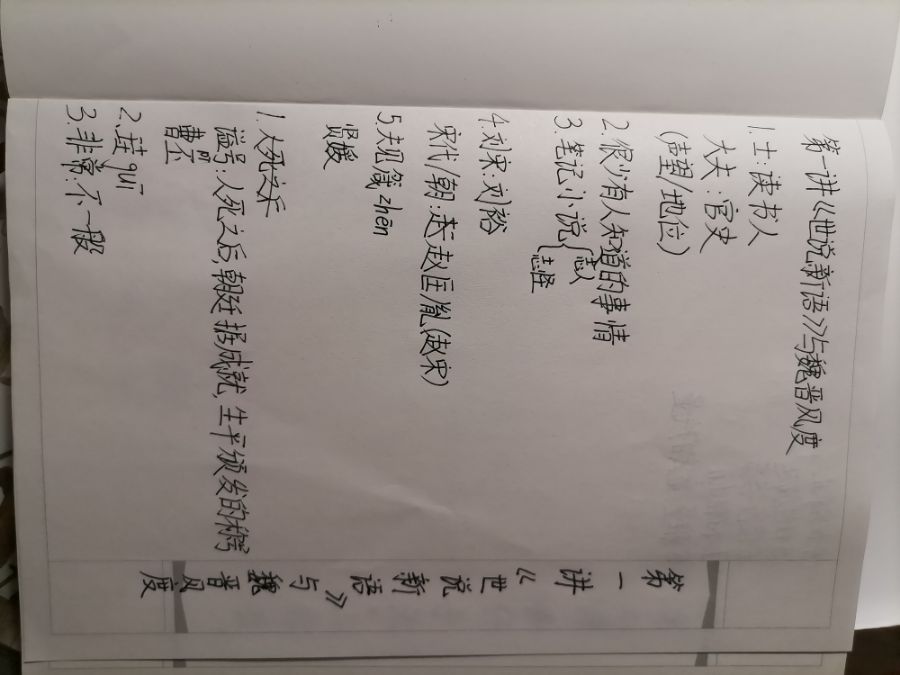 第一讲《世说新语》与魏晋风度
1.士:读书人
大夫:官史
(声望/地位)
2.很少有人知道的事情
3.笔记小说{志人
志怪
4.刘宋:刘裕
宋代/朝:赵匡胤(赵宋)
5.规箴zhēn
贤媛
1.人死之
谥号:人死之后,朝廷据成就、生平颁发的称号
曹丕
2.
3.非常:不一般
第一讲《世说新语》与魏晋风度